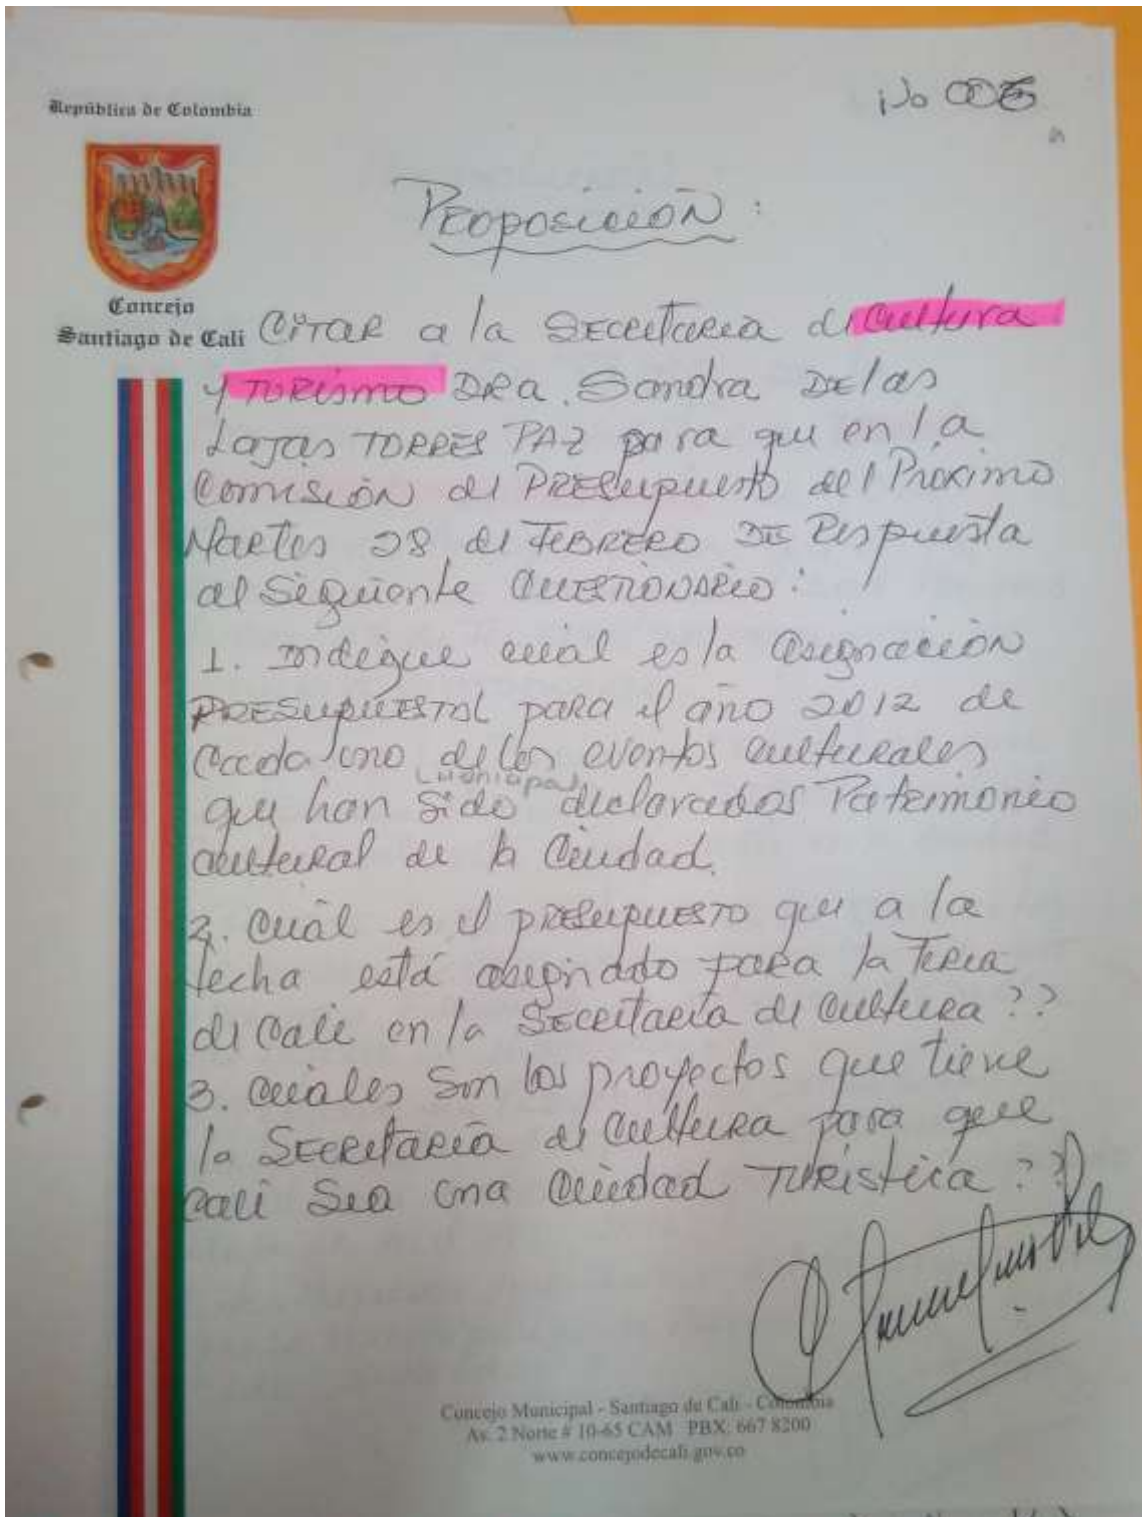 República de Colombia
No 006
Proposición:
Concejo
Santiago de Cali
Citar a la Secretaria de Cultura
y Turismo Dra. Sandra De las
Lajas Torres Paz para que en la
Comisión de Presupuesto del Próximo
Martes 28 de Febrero de Respuesta
al Siguiente Cuestionario:
1. Indique cuál es la asignación
Presupuestal para el año 2012 de
cada uno de los eventos culturales
que han sido declarados Patrimonio
cultural de la Ciudad.
2. Cuál es el presupuesto que a la
fecha está asignado para la Feria
de Cali en la Secretaría de Cultura??
3. Cuáles son los proyectos que tiene
la Secretaría de Cultura para que
Cali sea una Ciudad Turística??
Concejo Municipal - Santiago de Cali - Colombia
Av. 2 Norte # 10-65 CAM PBX: 667 8200
www.concejodecali.gov.co